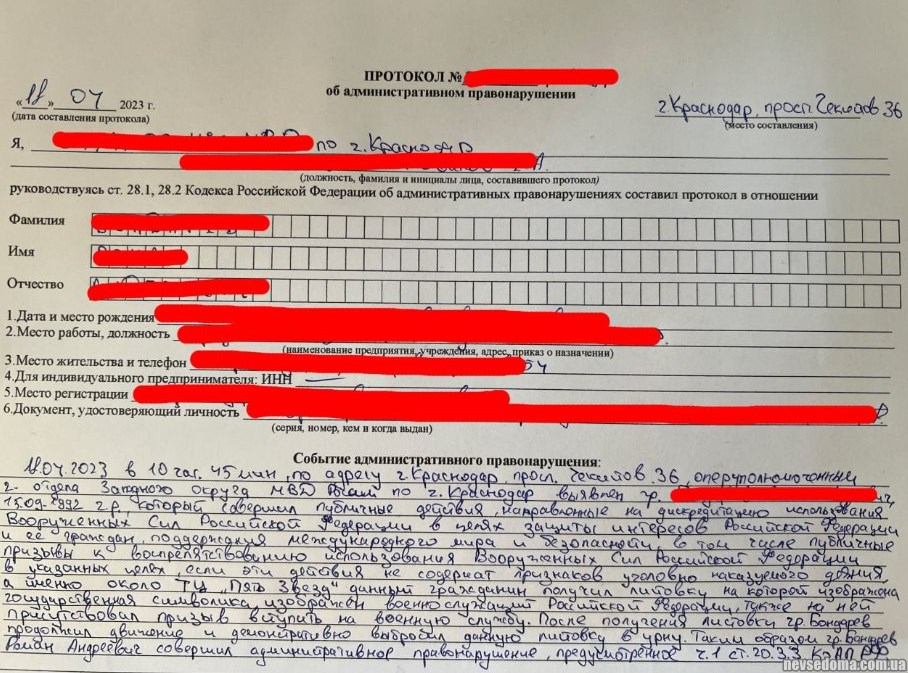 ПРОТОКОЛ №
об административном правонарушении
04 2023 г.
(дата составления протокола)
г. Краснодар, просп. Чекистов 36
(место составления)
Я, по г. Краснодар
(должность, фамилия и инициалы лица, составившего протокол)
руководствуясь ст. 28.1, 28.2 Кодекса Российской Федерации об административных правонарушениях составил протокол в отношении
Фамилия
Имя
Отчество
1.Дата и место рождения
2.Место работы, должность
(наименование предприятия, учреждения, адрес, приказ о назначении)
3.Место жительства и телефон
4.Для индивидуального предпринимателя: ИНН —
5.Место регистрации
6.Документ, удостоверяющий личность
(серия, номер, кем и когда выдан)
Событие административного правонарушения:
04.2023 в 10 час. 45 мин, по адресу г. Краснодар, просп. Чекистов 36, оперуполномоченным
2- отдела Западного округа МВД России по г. Краснодар выявлен гр.
15.09.1992 г.р., который совершил публичные действия, направленные на дискредитацию использования
Вооруженных Сил Российской Федерации в целях защиты интересов Российской Федерации
и ее граждан, поддержания международного мира и безопасности, в том числе публичные
призывы к воспрепятствованию использования Вооруженных Сил Российской Федерации
в указанных целях, если эти действия не содержат признаков уголовно наказуемого деяния,
а именно около ТЦ „Пять Звезд" данный гражданин получил листовку на которой изображена
государственная символика изображен военнослужащий Российской Федерации, также на ней
присутствовал призыв вступить на военную службу. После получения листовки гр. Бондарев
продолжил движение и демонстративно выбросил данную листовку в урну. Таким образом гр. Бондарев
Роман Андреевич совершил административное правонарушение, предусмотренное ч.1 ст. 20.3.3 КоАП РФ
nevsedoma.com.ua